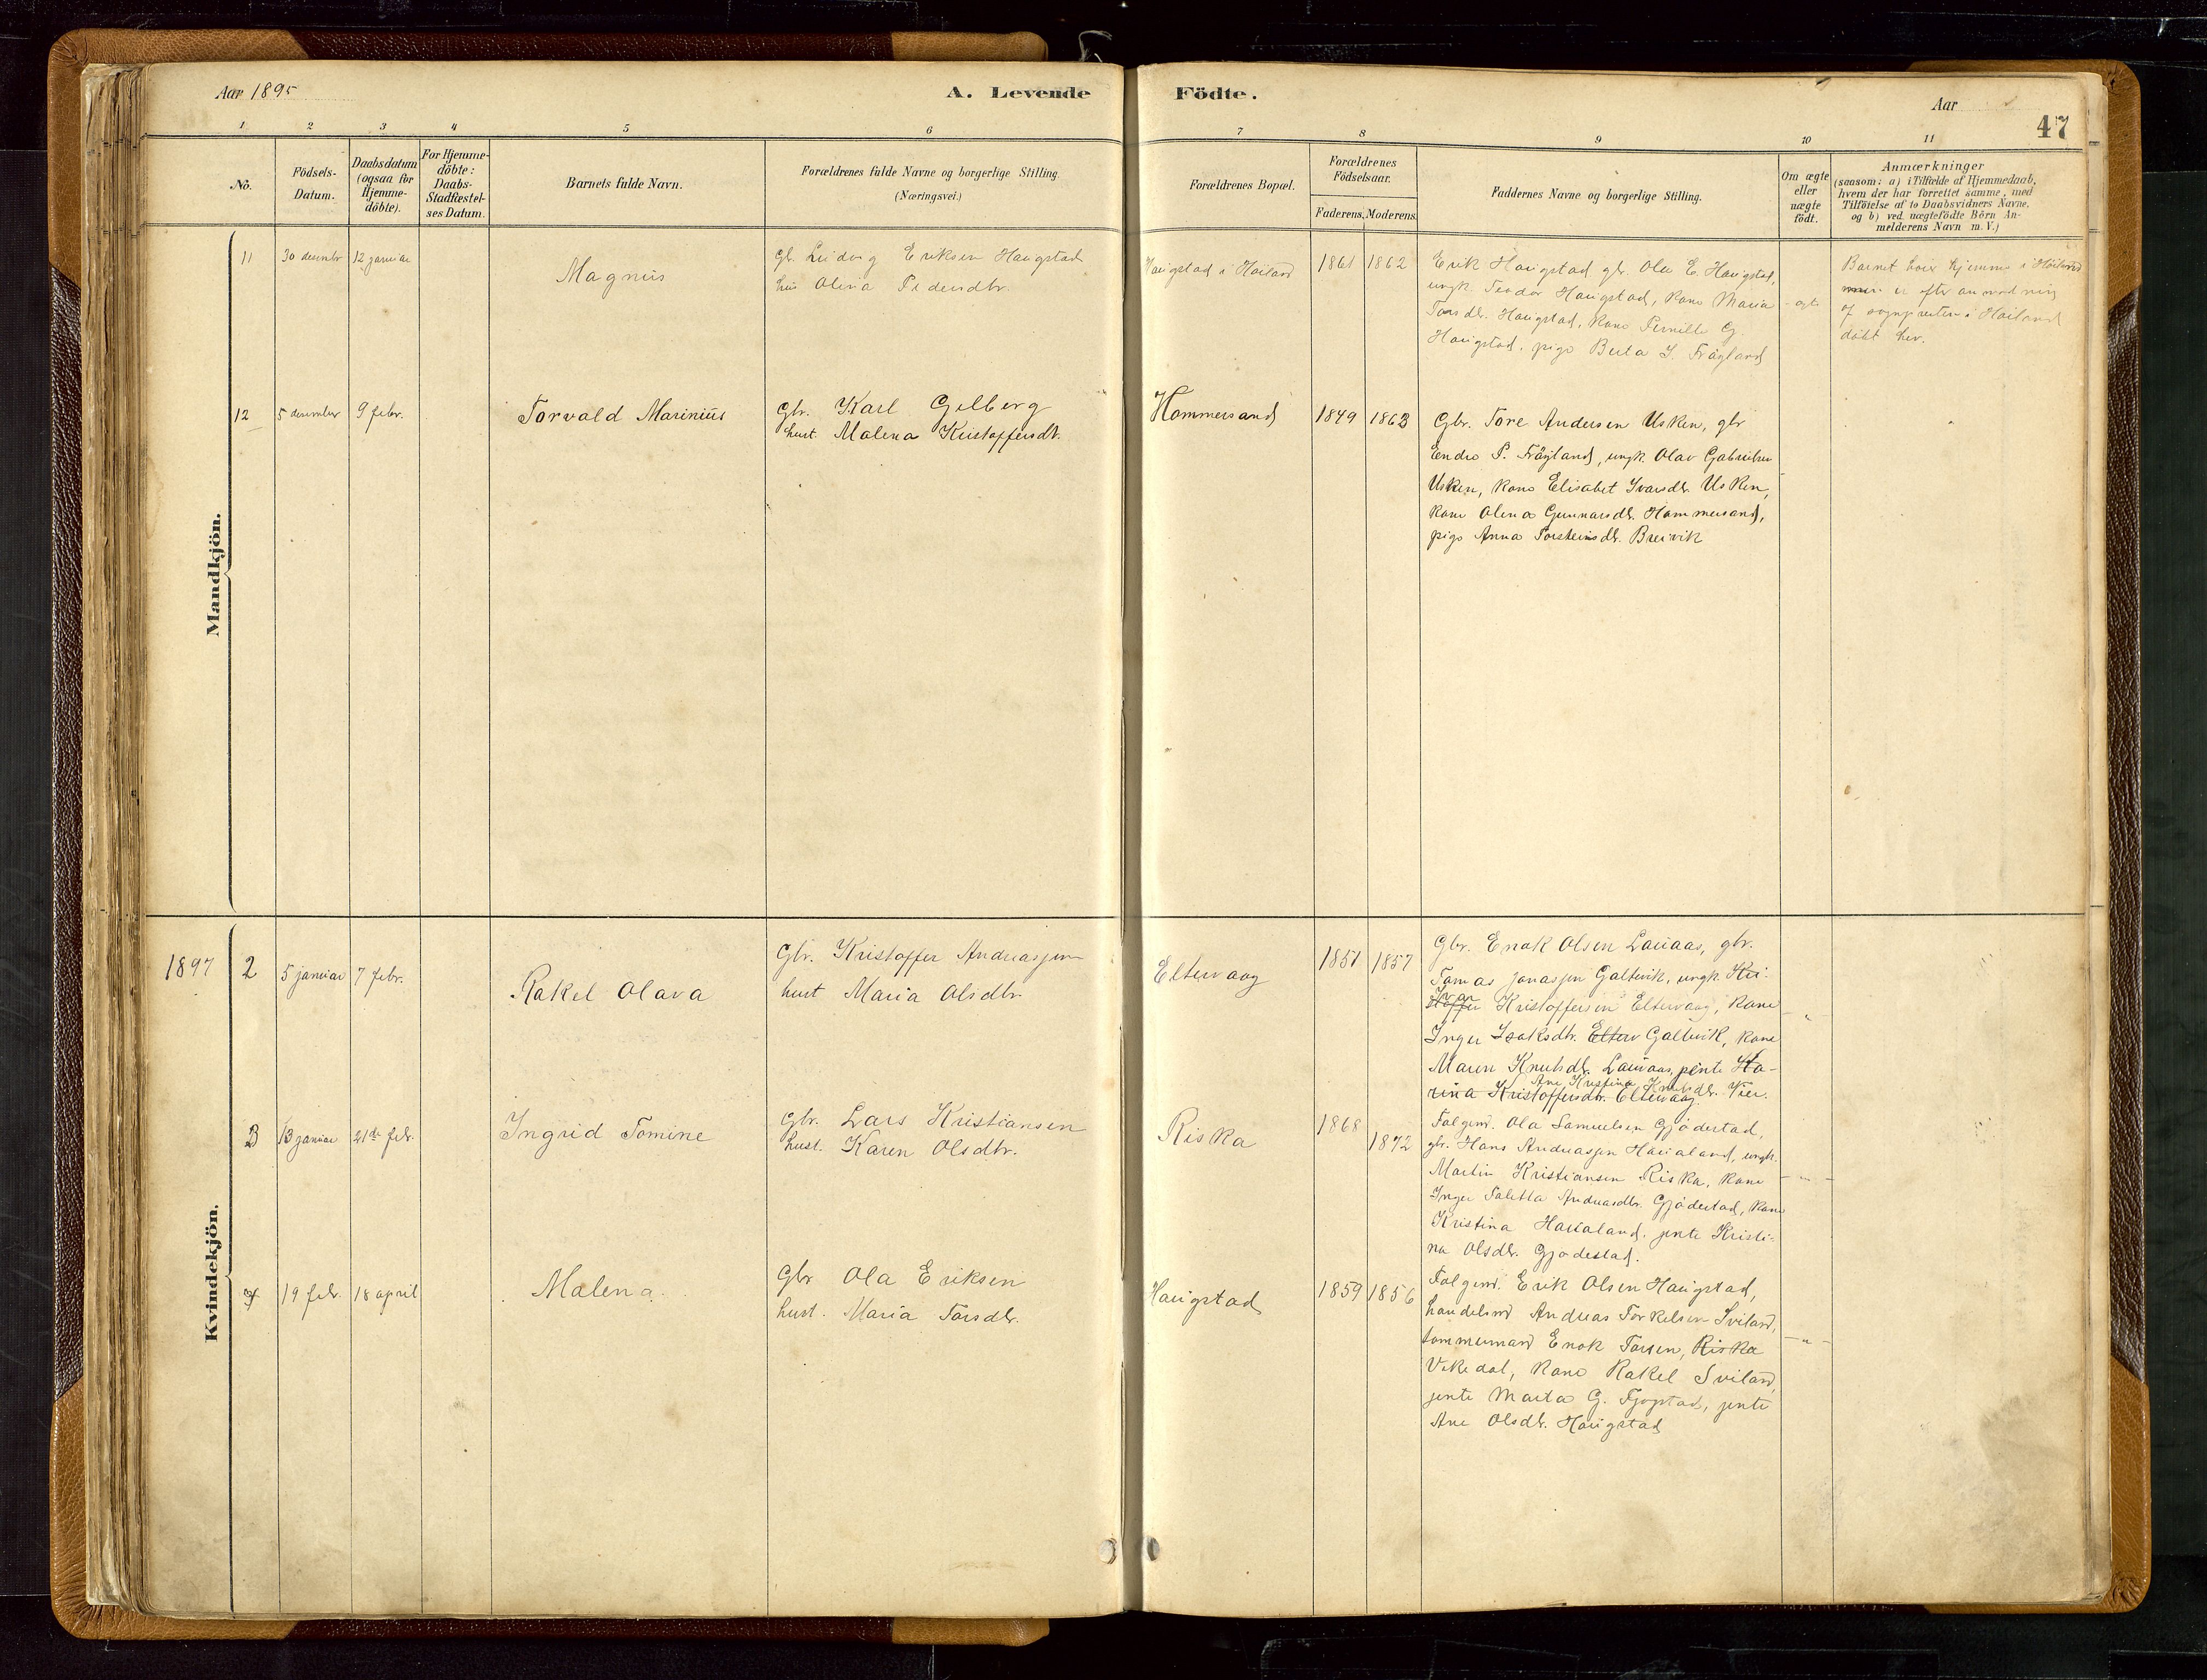 Aar 1895
A. Levende Födte.
Aar
47
1 2 3 4 5 6 7 8 9 10 11
No.
Födsels-Datum.
Daabsdatum (ogsaa for Hjemme-döbte).
For Hjemme-döbte: Daabs-Stadfæstel-ses Datum.
Barnets fulde Navn.
Forældrenes fulde Navne og borgerlige Stilling.
(Næringsvei.)
Forældrenes Bopæl.
Forældrenes Födselsaar.
Faderens. Moderens.
Faddernes Navne og borgerlige Stilling.
Om ægte eller uægte födt.
Anmærkninger
(saasom: a) i Tilfælde af Hjemmedaab,
hvem der har forrettet samme, med
Tilföielse af to Daabsvidners Navne,
og b) ved uægtefödte Börn An-
melderens Navn m. V.)
Mandkjön.
11 30 desembr 12 januar
Magnus
Gbr. Ludvig Eriksen Haugstad
hus Olena Pedersdtr.
Haugstad i Höiland
1861 1862
Erik Haugstad gbr. Ola E. Haugstad,
ungk. Teodor Haugstad, kone Maria
Torsdtr. Haugstad, kone Pernille G.
Haugstad, pige Berta I. Fröyland
ægte
Barnet hører hjemme i Höiland
men er efter anmodning
af sognepresten i Höiland
döbt her.
12 5 desember 9 febr.
Torvald Marinius
Gbr. Karl Gilberg
hust. Malena Kristoffersdtr.
Hommersand
1849 1863
Gbr. Tore Andersen Usken, gbr
Endre P. Fröyland, ungk. Olav Gabrielsen
Usken, kone Elisabet Ivarsdtr. Usken,
kone Olena Gunnarsdtr. Hommersand,
pige Anna Torsteinsdtr. Breivik
Kvindekjön.
1897 2 5 januar 7 febr.
Rakel Olava
Gbr. Kristoffer Andreassen
hust Maria Olsdtr.
Eltervaag
1851 1857
Gbr. Enok Olsen Lauaas, gbr.
Tomas Jonassen Galtevik, ungk. Kri-
stoffer Ivar Kristoffersen Eltervaag, kone
Inger Isaksdtr. Elterv Galtevik, kone
Maren Knutsdtr. Lauaas, pente Ka-
Ane Kristina Knutsdtr. Vier.
rina Kristoffersdtr. Eltervaag
3 13 januar 21de febr.
Ingrid Tomine
Gbr. Lars Kristiansen
hust. Karen Olsdtr.
Riska
1868 1872
Folgem. Ola Samuelsen Gjödestad,
gbr. Hans Andreassen Haualand, ungk.
Martin Kristiansen Riska, kone
Inger Taletta Andreasdtr. Gjödestad, kone
Kristina Haualand, jente Kristi-
na Olsdtr. Gjödestad.
4 19 febr. 18 april
Malena.
Gbr Ola Eriksen
hust. Maria Torsdtr.
Haugstad
1859 1856
Folgem. Erik Olsen Haugstad,
handelsm Andreas Torkelsen Sviland,
tømmermand Enok Torsen, Riska
Vikedal, kone Rakel Sviland,
jente Marta G. Fjogstad, jente
Ane Olsdtr. Haugstad